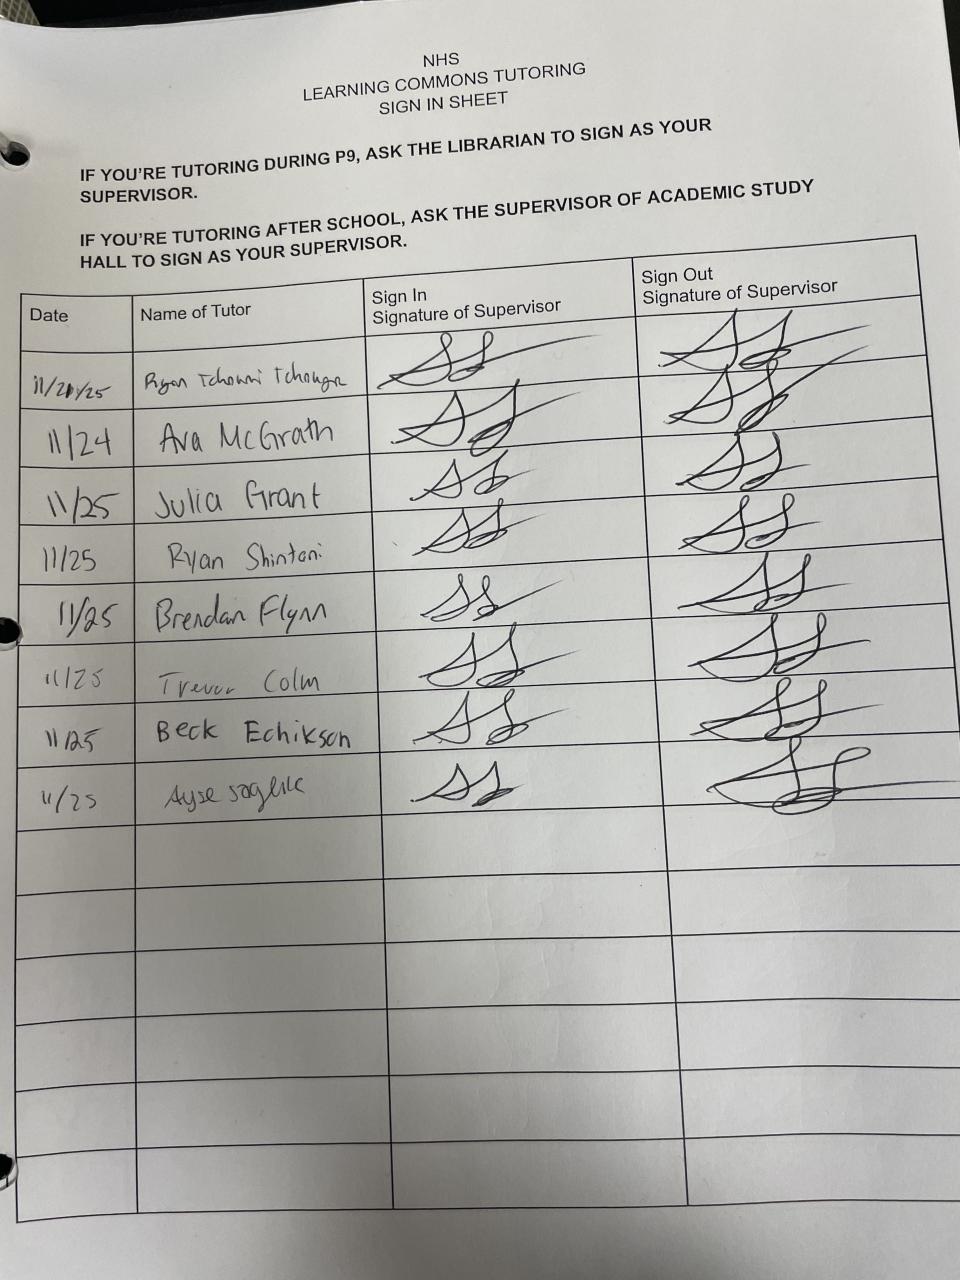 NHS
LEARNING COMMONS TUTORING
SIGN IN SHEET
IF YOU'RE TUTORING DURING P9, ASK THE LIBRARIAN TO SIGN AS YOUR
SUPERVISOR.
IF YOU'RE TUTORING AFTER SCHOOL, ASK THE SUPERVISOR OF ACADEMIC STUDY
HALL TO SIGN AS YOUR SUPERVISOR.
Date
Name of Tutor
Sign In
Signature of Supervisor
Sign Out
Signature of Supervisor
Ryan Tchoumi
11/24 Ava McGrath
11/25 Julia Grant
11/25 Ryan Shintani
11/25 Brendan Flynn
11/25 Trevor Colm
11/25 Beck Echikson
11/25 Ayse